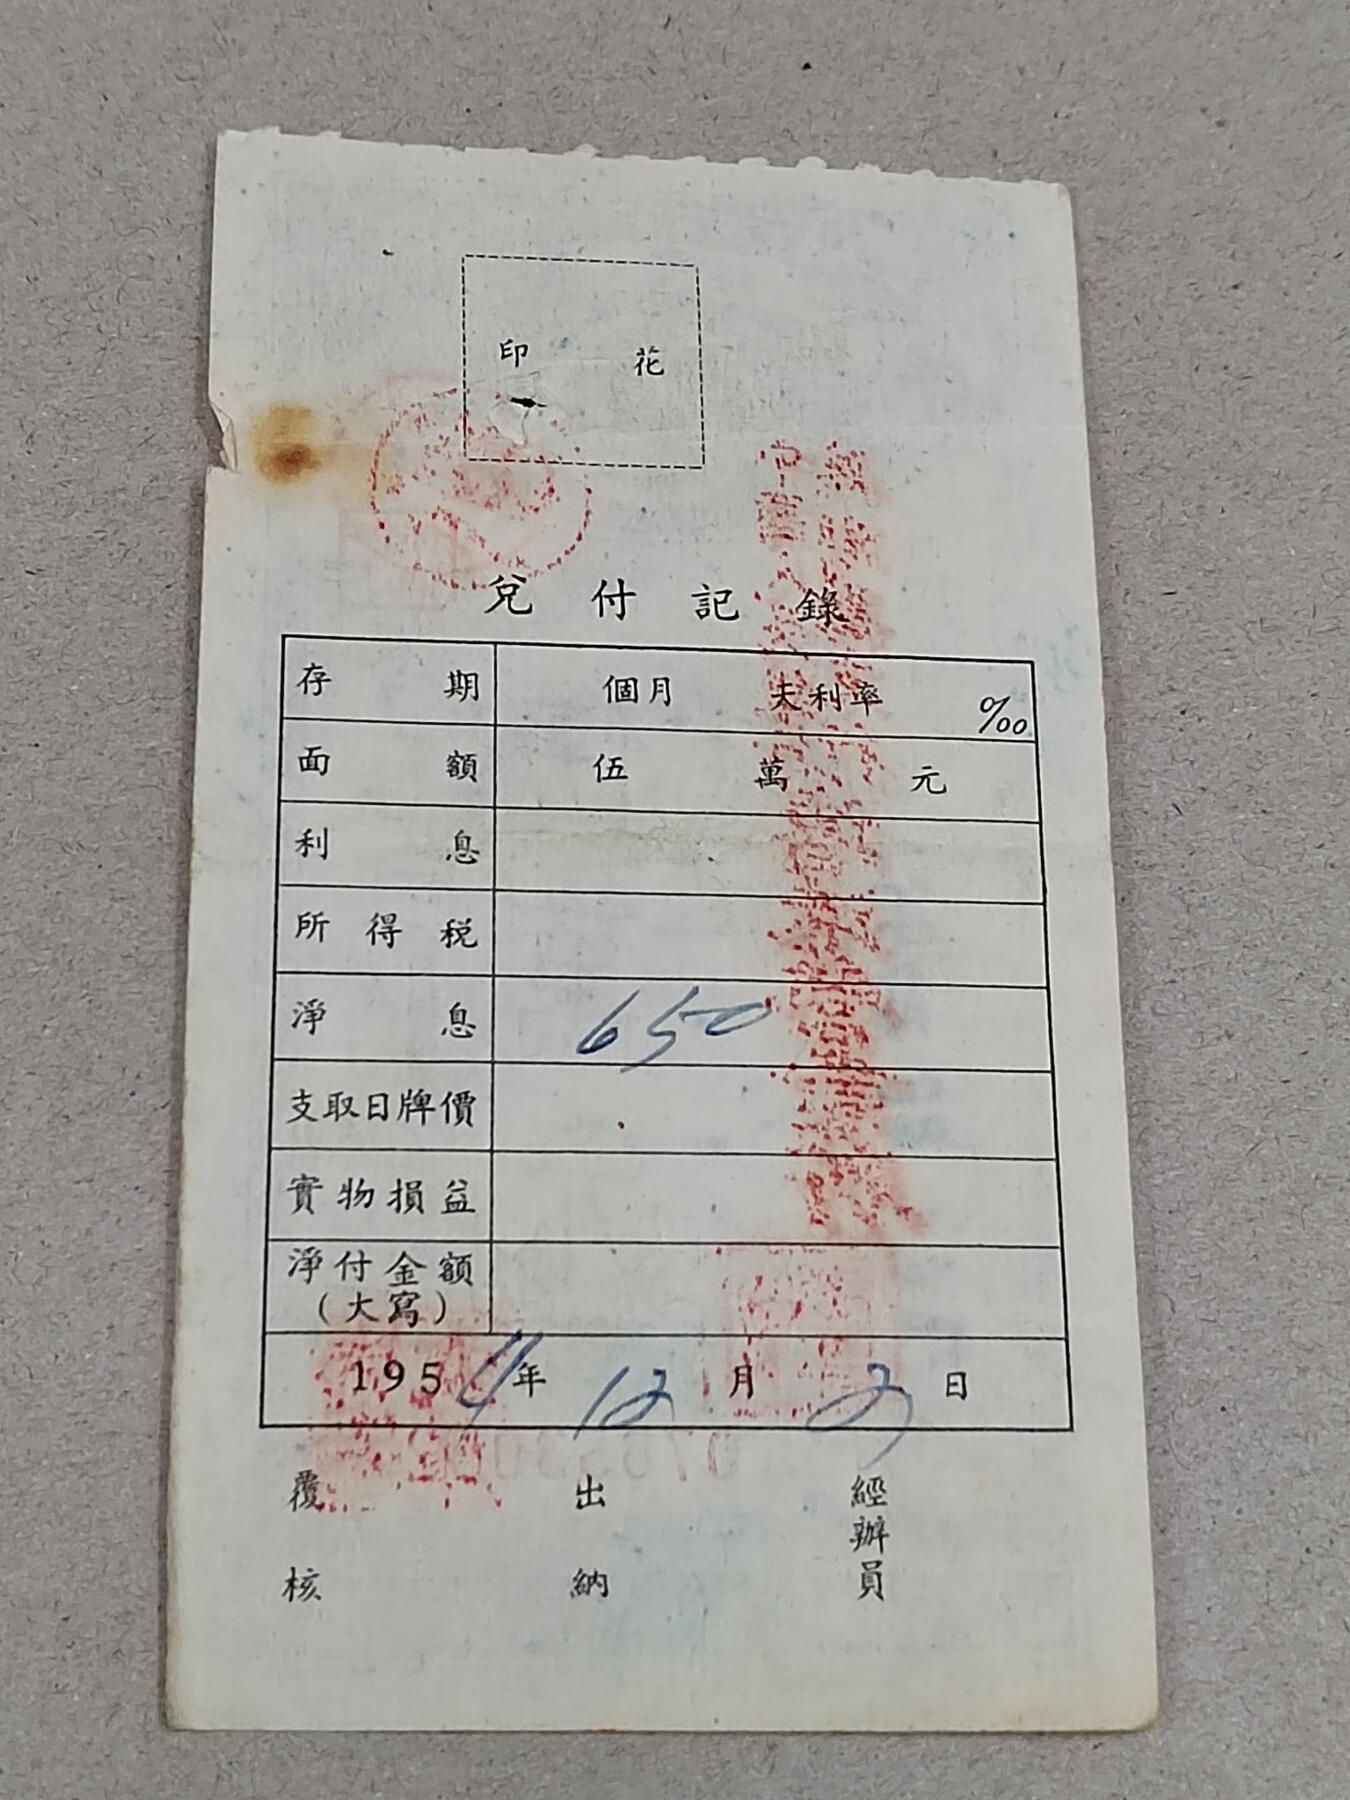 印 花
兌付記錄
存期 個月 利率 ‰
面額 伍萬元
利息
所得稅
淨息 650
支取日牌價
實物損益
淨付金額
(大寫)
1954年12月2日
覆核 出納 經辦員